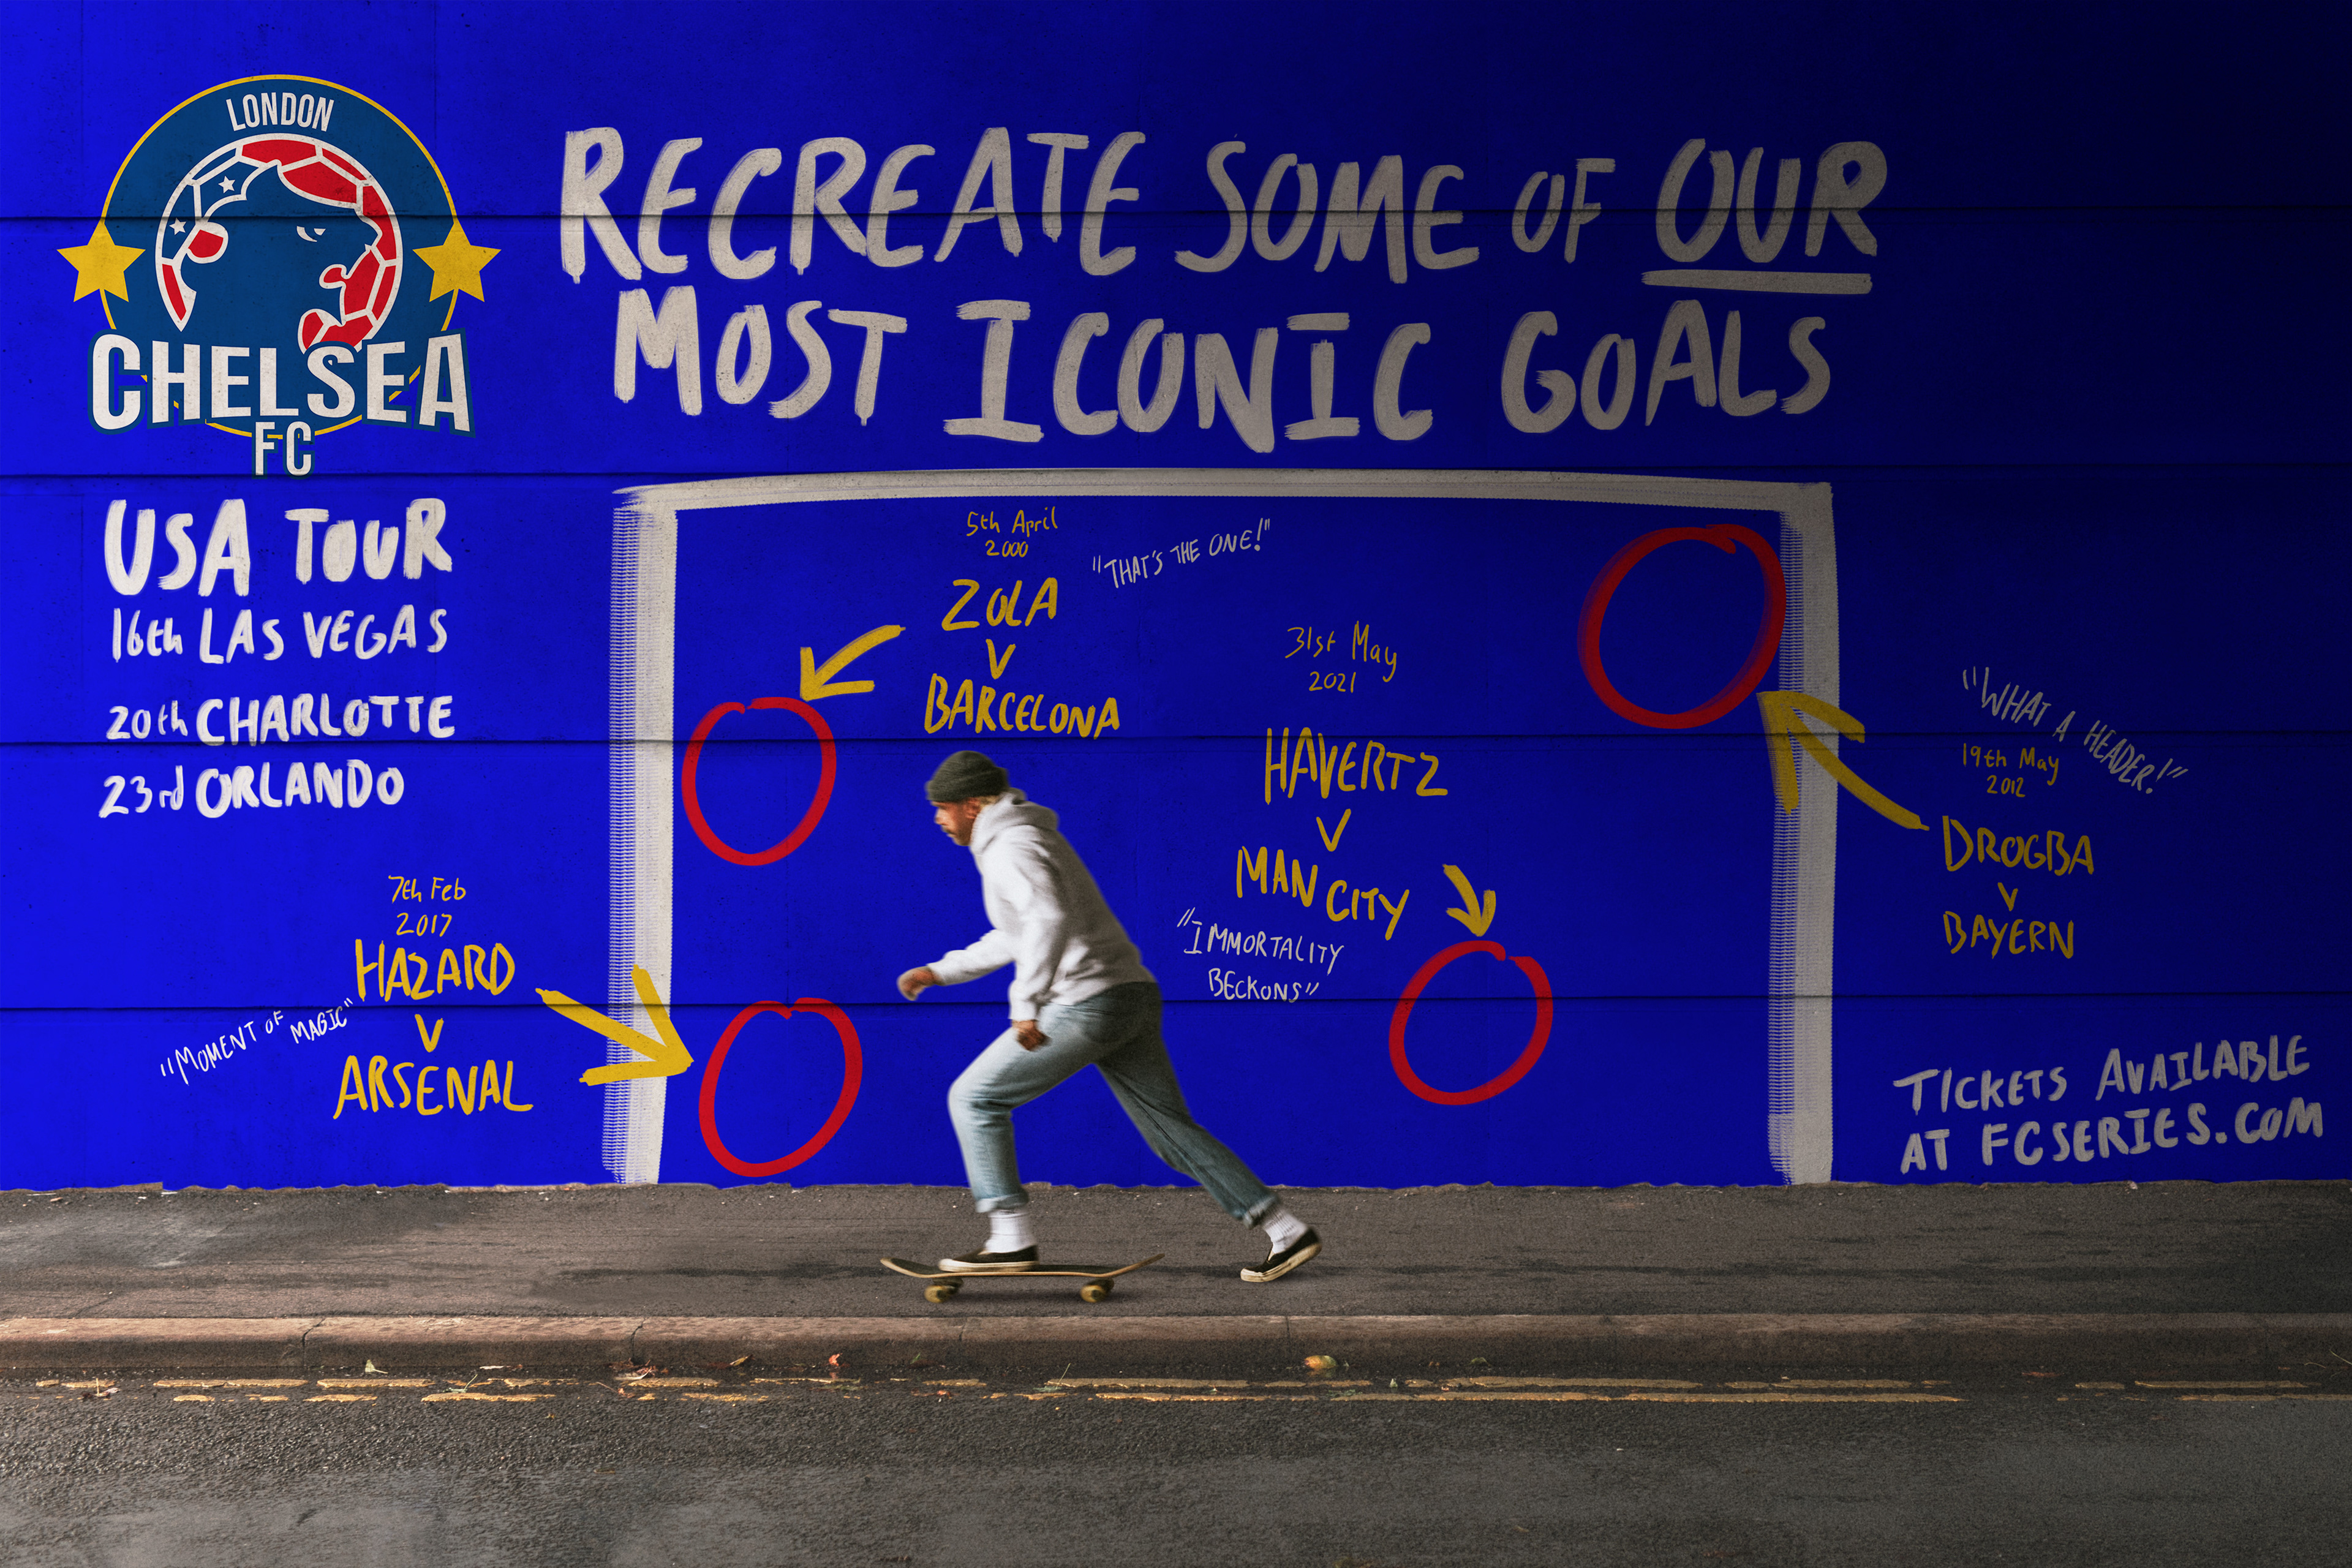 LONDON
CHELSEA
FC
RECREATE SOME OF OUR
MOST ICONIC GOALS
USA TOUR
16th LAS VEGAS
20th CHARLOTTE
23rd ORLANDO
5th April
2000
"THAT'S THE ONE!"
ZOLA
V
BARCELONA
31st May
2021
HAVERTZ
V
MAN CITY
"IMMORTALITY
BECKONS"
"WHAT A HEADER!"
19th May
2012
DROGBA
V
BAYERN
7th Feb
2017
HAZARD
"MOMENT OF MAGIC"
V
ARSENAL
TICKETS AVAILABLE
AT FCSERIES.COM